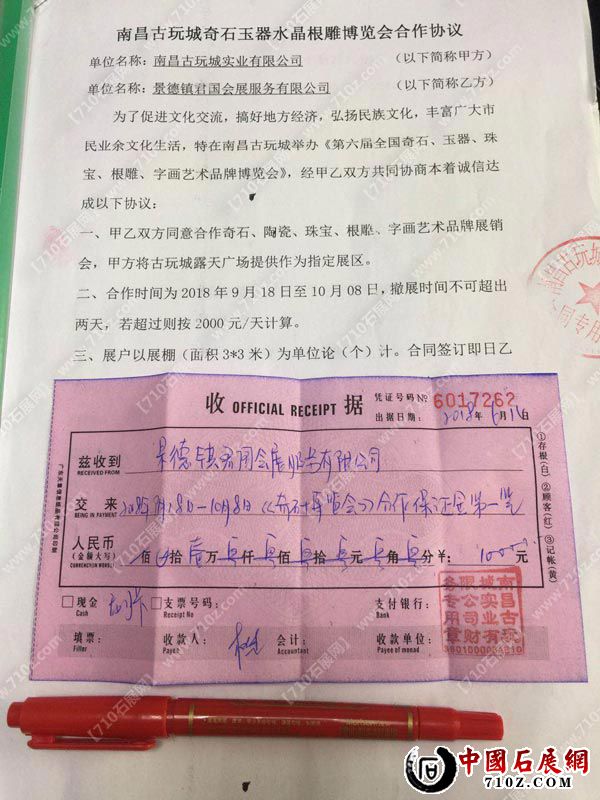 南昌古玩城奇石玉器水晶根雕博览会合作协议
单位名称：南昌古玩城实业有限公司 （以下简称甲方）
单位名称：景德镇君国会展服务有限公司 （以下简称乙方）
为了促进文化交流，搞好地方经济，弘扬民族文化，丰富广大市
民业余文化生活，特在南昌古玩城举办《第六届全国奇石、玉器、珠
宝、根雕、字画艺术品牌博览会》，经甲乙双方共同协商本着诚信达
成以下协议：
一、甲乙双方同意合作奇石、陶瓷、珠宝、根雕、字画艺术品牌展销
会，甲方将古玩城露天广场提供作为指定展区。
二、合作时间为 2018 年 9 月 18 日至 10 月 08 日，撤展时间不可超出
两天，若超过则按 2000 元/天计算。
三、展户以展棚（面积 3*3 米）为单位论（个）计。合同签订即日乙
收 OFFICIAL RECEIPT 据
凭证号码 № 6017262
出据日期： 2018年6月 日
兹收到 景德镇君国会展服务有限公司
RECEIVED FROM
交 来 9月18日-10月8日《奇石博览会》合作保证金第一笔
BEING IN PAYMENT
人民币 佰 拾 壹 万 仟 佰 拾 元 角 分 ¥： 元
(金额大写)
①存根(白) ②顾客(红) ③记帐(黄)
□现金 □支票号码： 支付银行：
Cash Receipt No Bank
填票： 收款人： 会计： 收款单位：
Filler Payee Accountant Payee of monad
南昌古玩
城实业有
限公司财
务专用章
中國石展網
710Z.COM